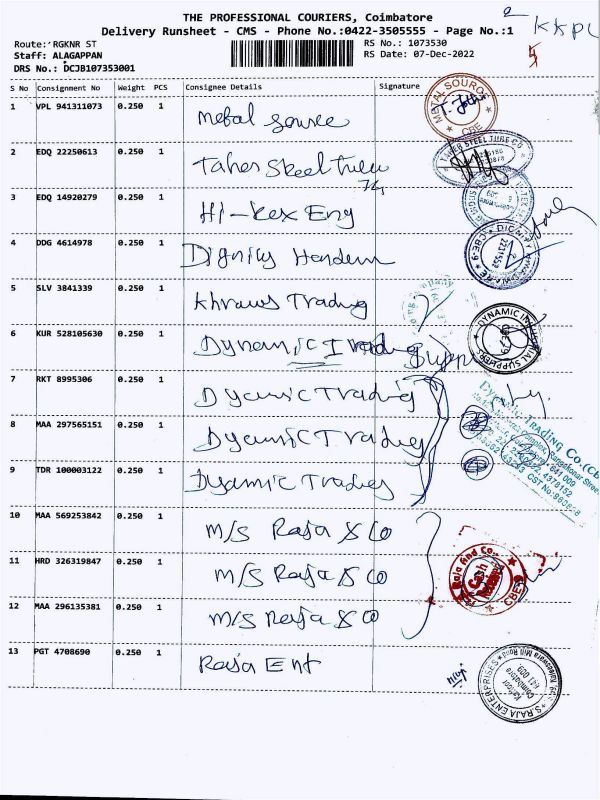 THE PROFESSIONAL COURIERS, Coimbatore
Delivery Runsheet - CMS - Phone No.:0422-3505555 - Page No.:1
KKPL
Route: RGKNR ST
RS No.: 1073530
Staff: ALAGAPPAN
RS Date: 07-Dec-2022
DRS No.: DCJB107353001
S No Consignment No Weight PCS Consignee Details Signature
1 VPL 941311073 0.250 1 Metal Source
METAL SOURCE CBE
2 EDQ 22250613 0.250 1 Taher Steel Tube
TAHER STEEL TUBE CO
3 EDQ 14920279 0.250 1 Hi-Rex Eng
4 DDG 4614978 0.250 1 Dignity
DIGNITY CBE-9
5 SLV 3841339 0.250 1 Trading
6 KUR 528105630 0.250 1 Dynamic I
DYNAMIC INDUSTRIAL SUPPLIERS
7 RKT 8995306 0.250 1 Dyamic Trading
Dynamic Trading Co.(CB
8 MAA 297565151 0.250 1 Dyamic Trading
9 TDR 100003122 0.250 1 Dyamic Trading
10 MAA 569253842 0.250 1 M/S Raja & Co
11 HRD 326319847 0.250 1 M/S Raja & Co
Raja And Co. Cash CBE-9
12 MAA 296135381 0.250 1 M/S Raja & Co
13 PGT 4708690 0.250 1 Raja Ent
S RAJA ENTERPRISES Kattoor Coimbatore 641 009